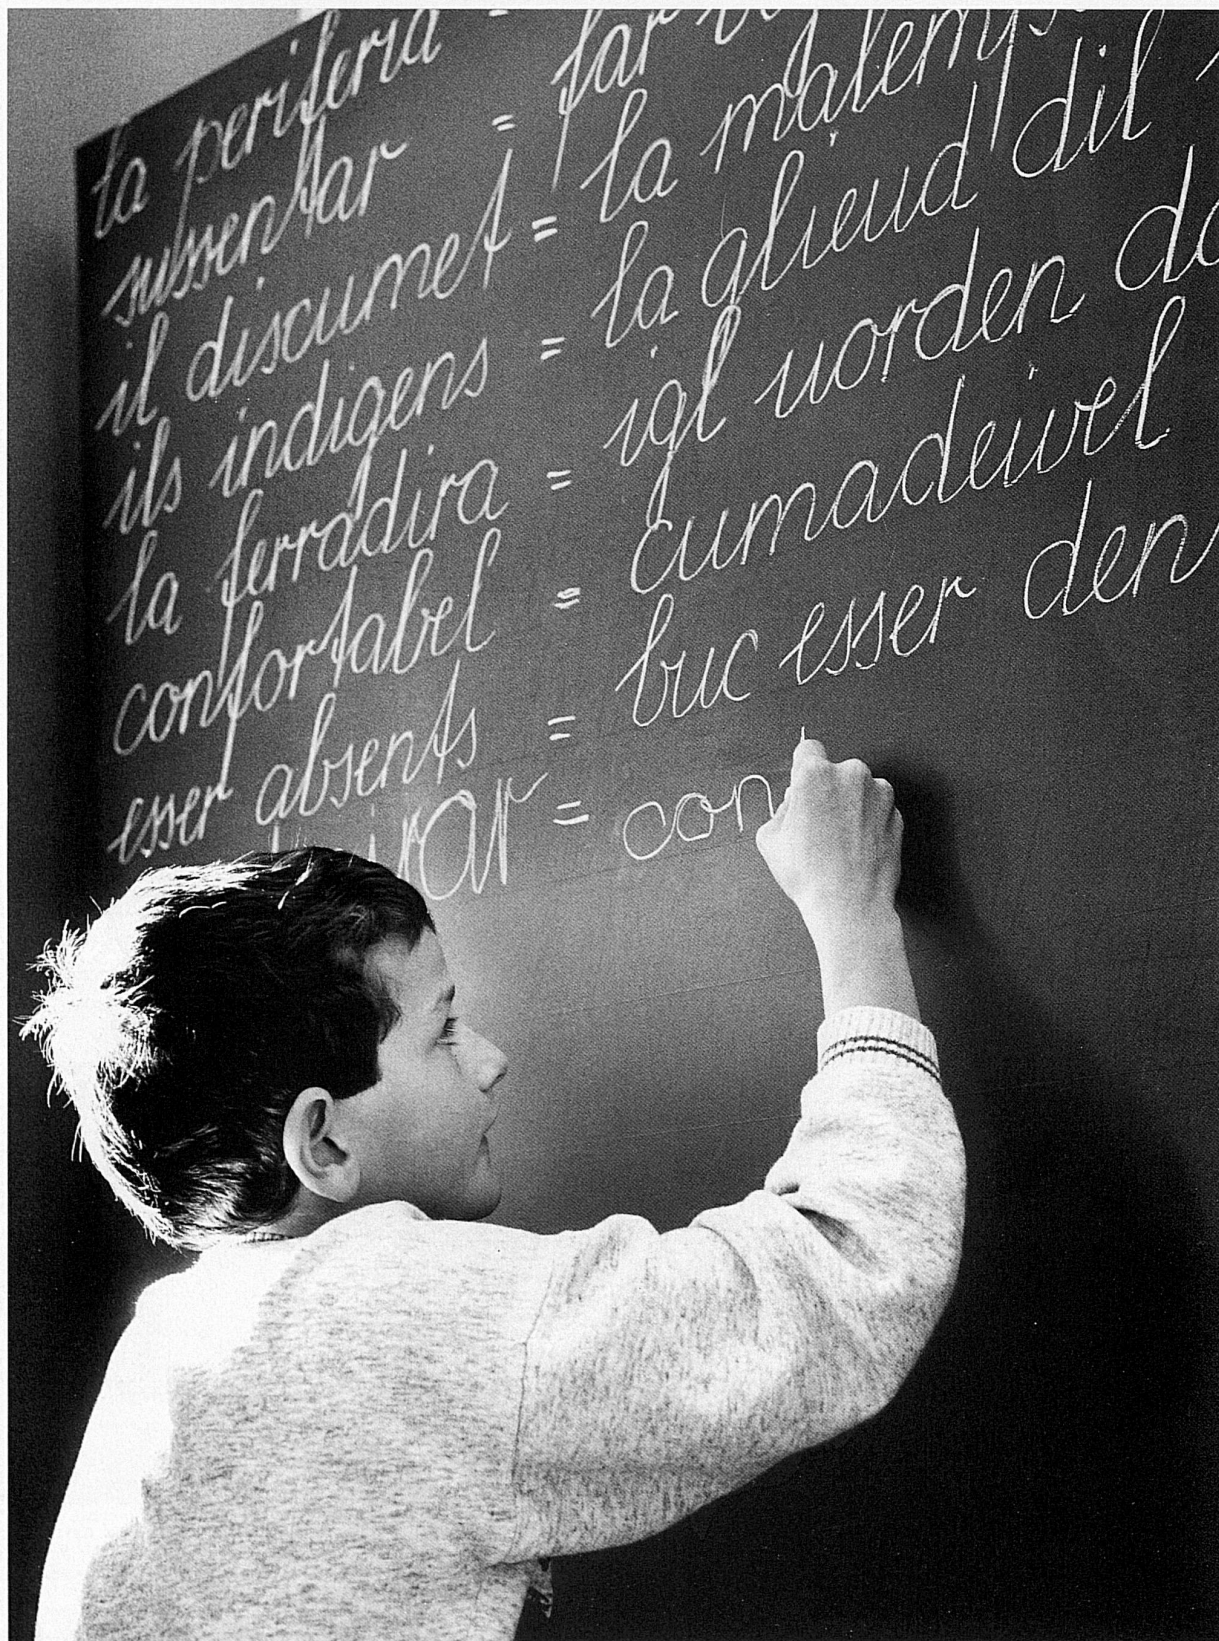 la periferia =
sussentar = far
il discumet = la malemp
ils indigens = la glieud dil
la ferradira = igl uorden da
confortabel = cumadeivel
esser absents = buc esser den
= con